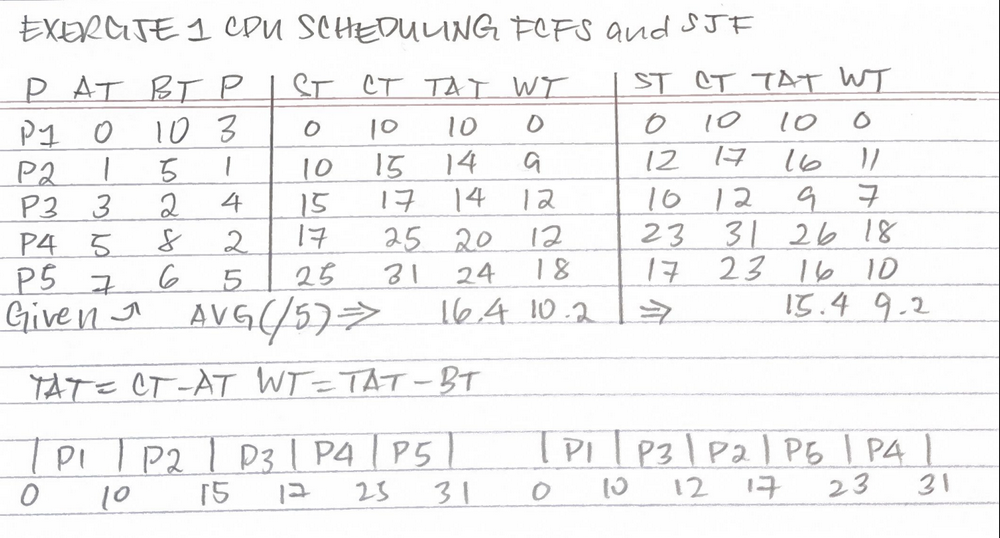 EXERCISE 1 CPU SCHEDULING FCFS and SJF
P AT BT P | ST CT TAT WT | ST CT TAT WT
P1 0 10 3 | 0 10 10 0 | 0 10 10 0
P2 1 5 1 | 10 15 14 9 | 12 17 16 11
P3 3 2 4 | 15 17 14 12 | 10 12 9 7
P4 5 8 2 | 17 25 20 12 | 23 31 26 18
P5 7 6 5 | 25 31 24 18 | 17 23 16 10
Given AVG(/5) ⇒ 16.4 10.2 | ⇒ 15.4 9.2
TAT = CT - AT WT = TAT - BT
| P1 | P2 | P3 | P4 | P5 | | P1 | P3 | P2 | P5 | P4 |
0 10 15 17 25 31 0 10 12 17 23 31